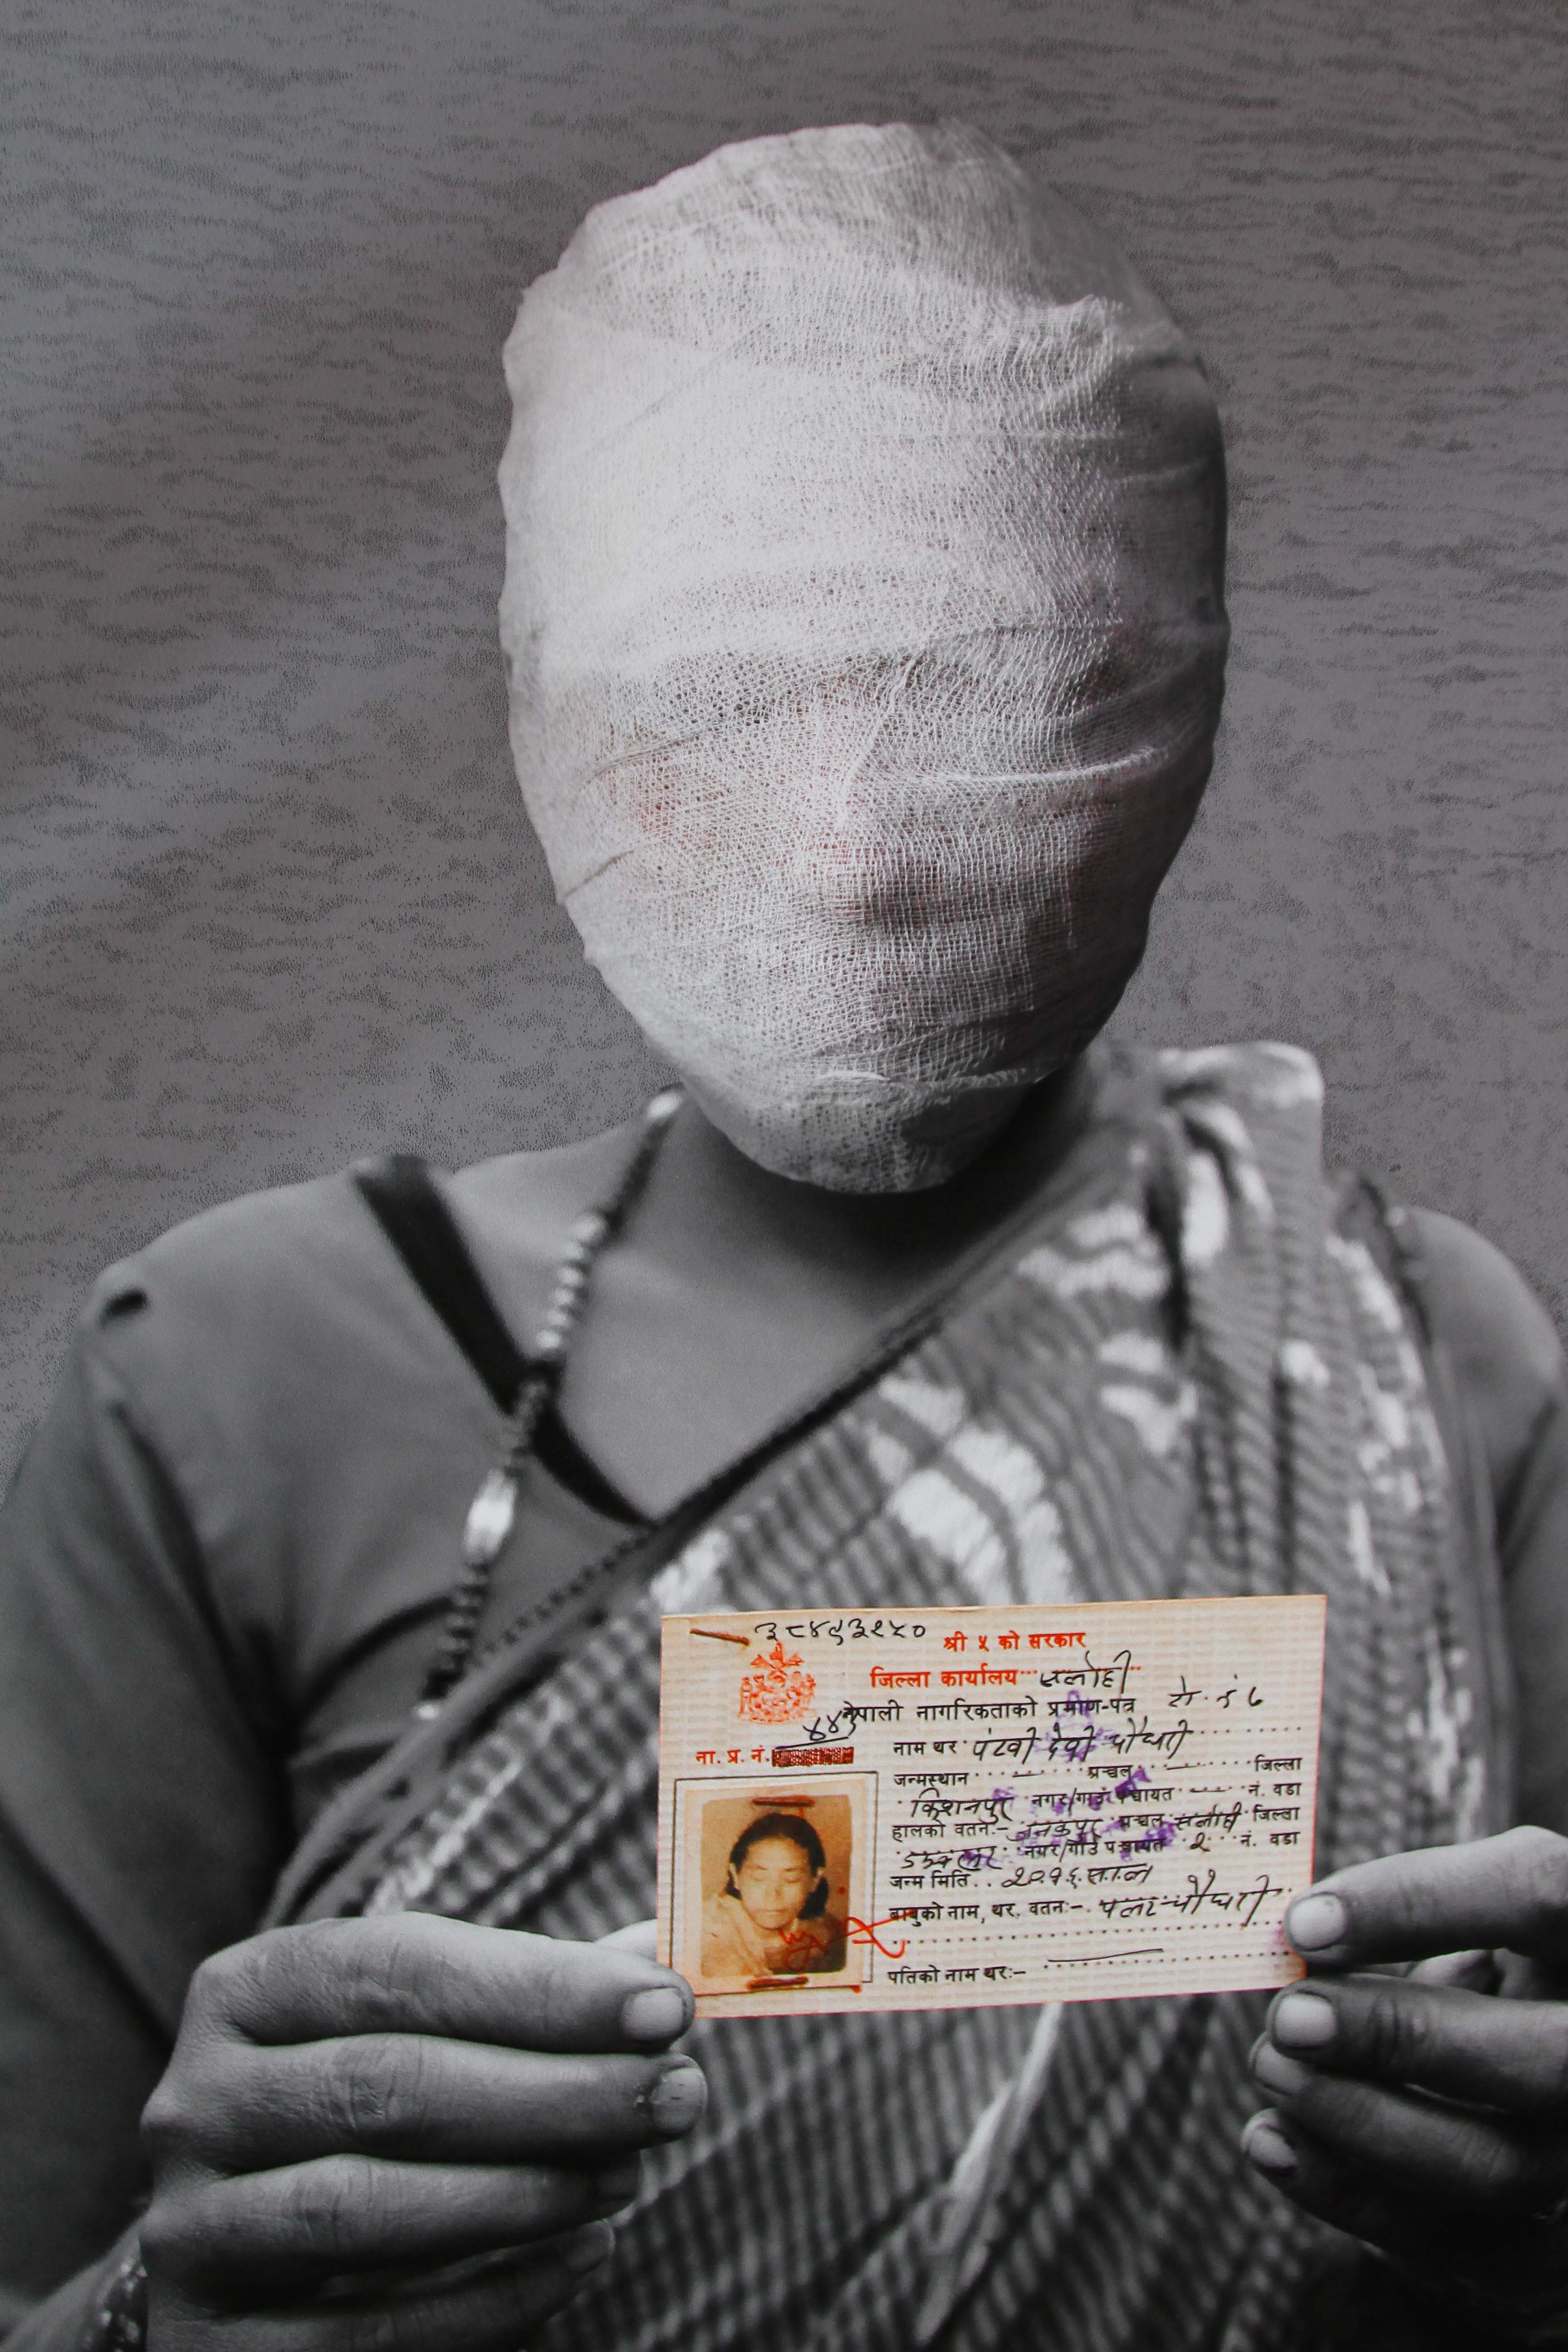 ३८४९३२५०
श्री ५ को सरकार
जिल्ला कार्यालय सर्लाही
नेपाली नागरिकताको प्रमाण-पत्र
ना. प्र. नं.
नाम थर देवी चौधरी
जन्मस्थान अञ्चल जिल्ला
किशनपुर नगर/गाउँ पञ्चायत नं. वडा
हालको वतनः- जनकपुर अञ्चल सर्लाही जिल्ला
नगर/गाउँ पञ्चायत २ नं. वडा
जन्म मिति
बाबुको नाम, थर, वतनः- चौधरी
पतिको नाम थरः-